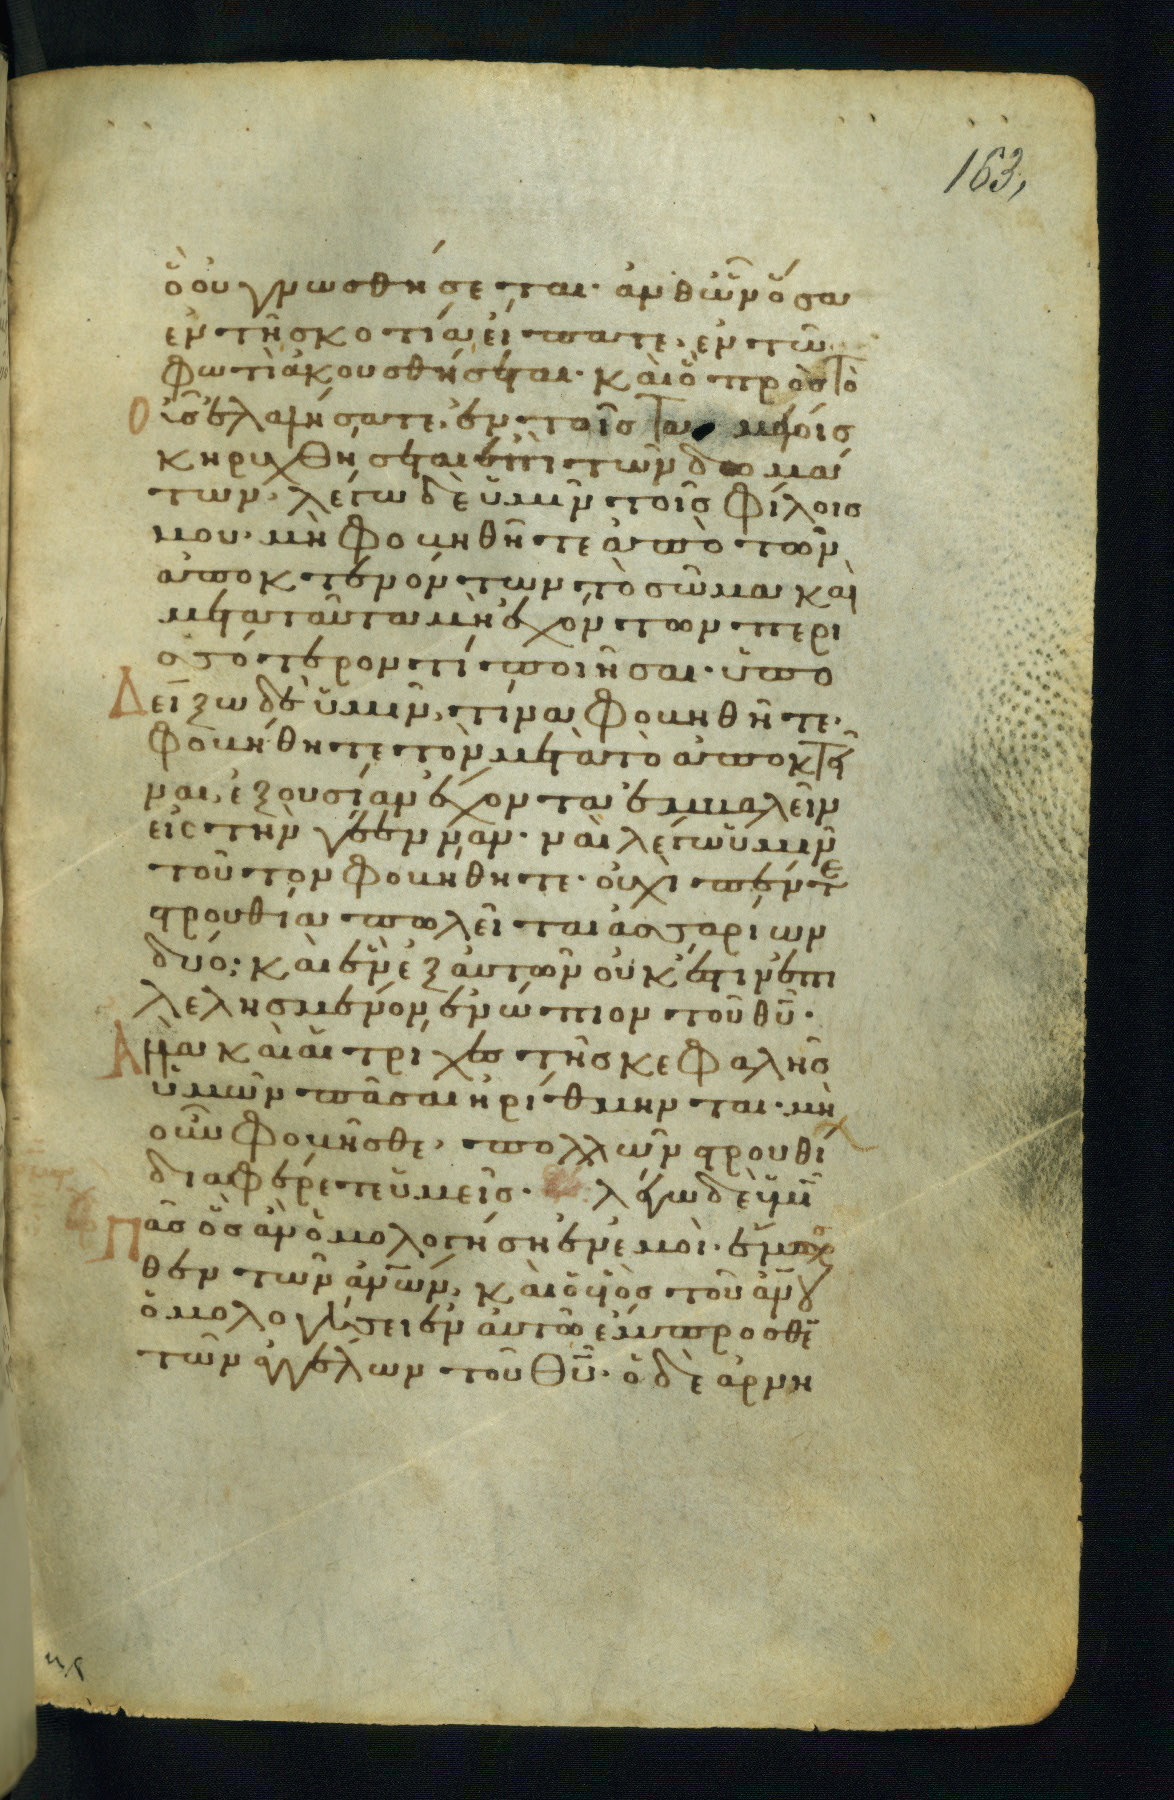 163,
ὃ οὐ γνωσθήσεται· ἀνθῶν ὅσα
ἐν τῇ σκοτίᾳ εἴπατε, ἐν τῶ
φωτὶ ἀκουσθήσεται· καὶ ὃ πρὸς τὸ
οὖς ἐλαλήσατε ἐν τοῖς ταμείοις
κηρυχθήσεται ἐπὶ τῶν δωμά
των, λέγω δὲ ὑμῖν τοῖς φίλοις
μου· μὴ φοβηθῆτε ἀπὸ τῶν
ἀποκτενόντων τὸ σῶμα καὶ
μετὰ ταῦτα μὴ ἐχόντων περι
σσότερόν τι ποιῆσαι· ὑπο
Δείξω δὲ ὑμῖν, τίνα φοβηθῆτε·
φοβήθητε τὸν μετὰ τὸ ἀποκτεῖ
ναι, ἐξουσίαν ἔχοντα ἐμβαλεῖν
εἰς τὴν γέενναν· ναὶ λέγω ὑμῖν
τοῦτον φοβήθητε· οὐχὶ πέντε
στρουθία πωλεῖται ἀσσαρίων
δύο; καὶ ἓν ἐξ αὐτῶν οὐκ ἔστιν ἐπι
λελησμένον ἐνώπιον τοῦ θῦ·
Ἀλλὰ καὶ αἱ τρίχες τῆς κεφαλῆς
ὑμῶν πᾶσαι ἠρίθμηνται· μὴ
οὖν φοβῆσθε, πολλῶν στρουθί
διαφέρετε ὑμεῖς· λέγω δὲ ὑμῖ
Πᾶς ὃς ἂν ὁμολογήσῃ ἐν ἐμοὶ· ἔμπρο
θεν τῶν ἀνων, καὶ ὁ υἱὸς τοῦ ἀνου
ὁμολογήσει ἐν αὐτῶ ἔμπροσθε
τῶν ἀγγέλων τοῦ Θῦ· ὁ δὲ ἀρνη